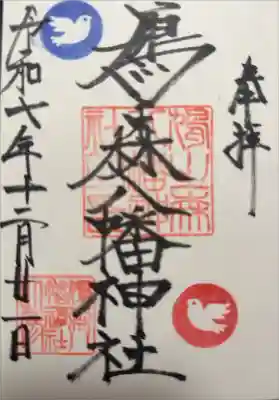 奉拝
鳩森八幡神社
令和六年十二月廿一日